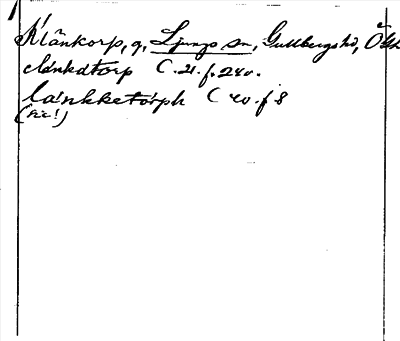 Klänkorp, g, Ljungs sn, Gullbergs hd, Ög
clänkatorp C. 21. f. 240.
länkketorph C 20. f 8
(sic!)